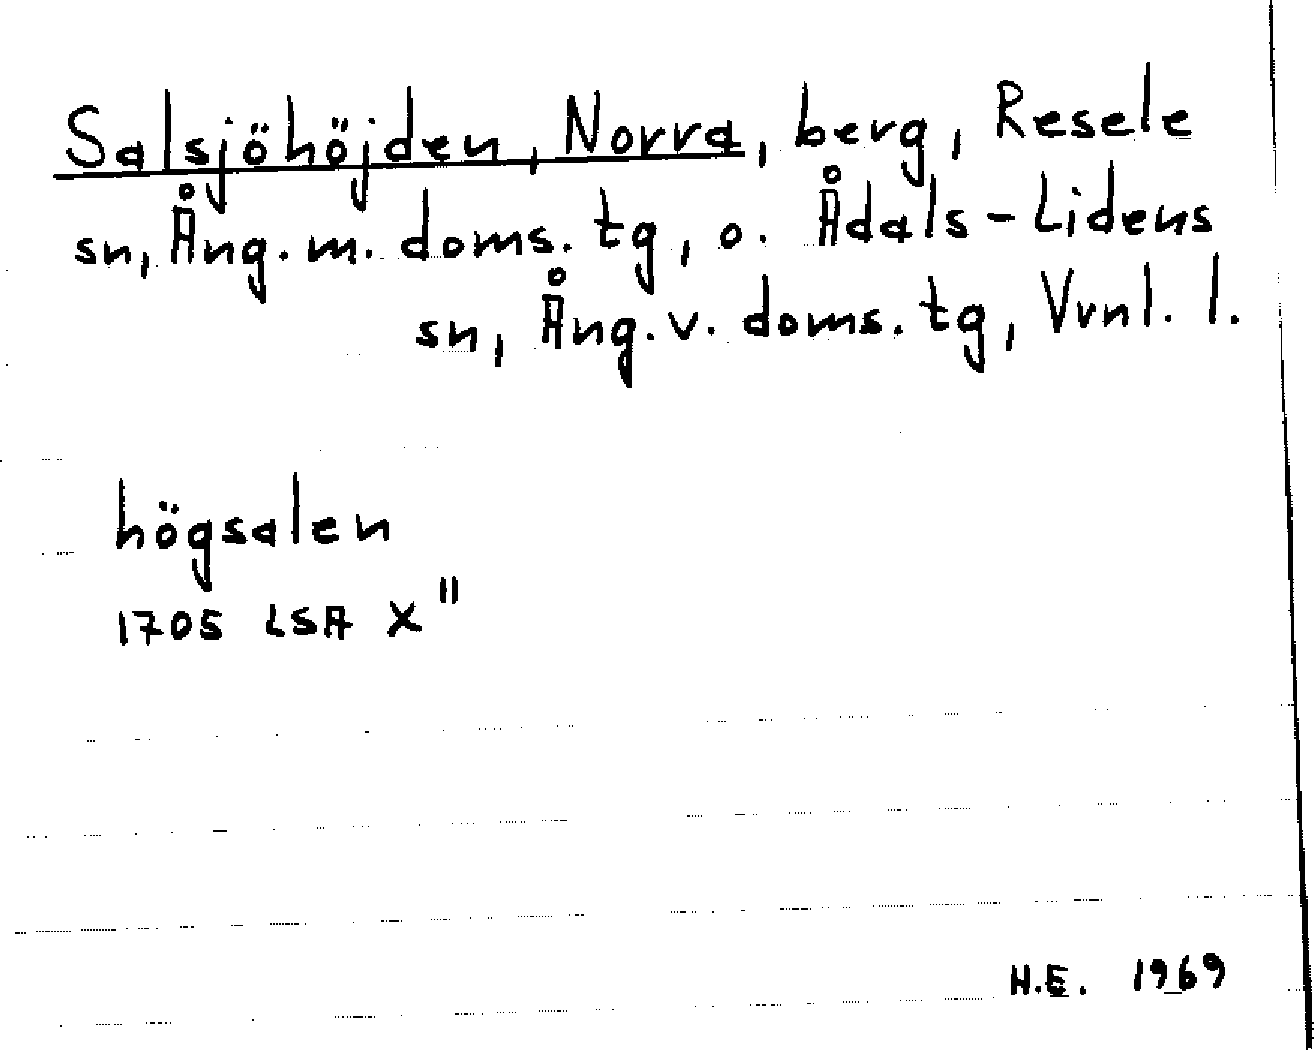 Salsjöhöjden, Norra, berg, Resele
sn, Ång. m. doms. tg, o. Ådals-Lidens
sn, Ång. v. doms. tg, Vvnl. l.
högsalen
1705 LSA X"
H.E. 1969